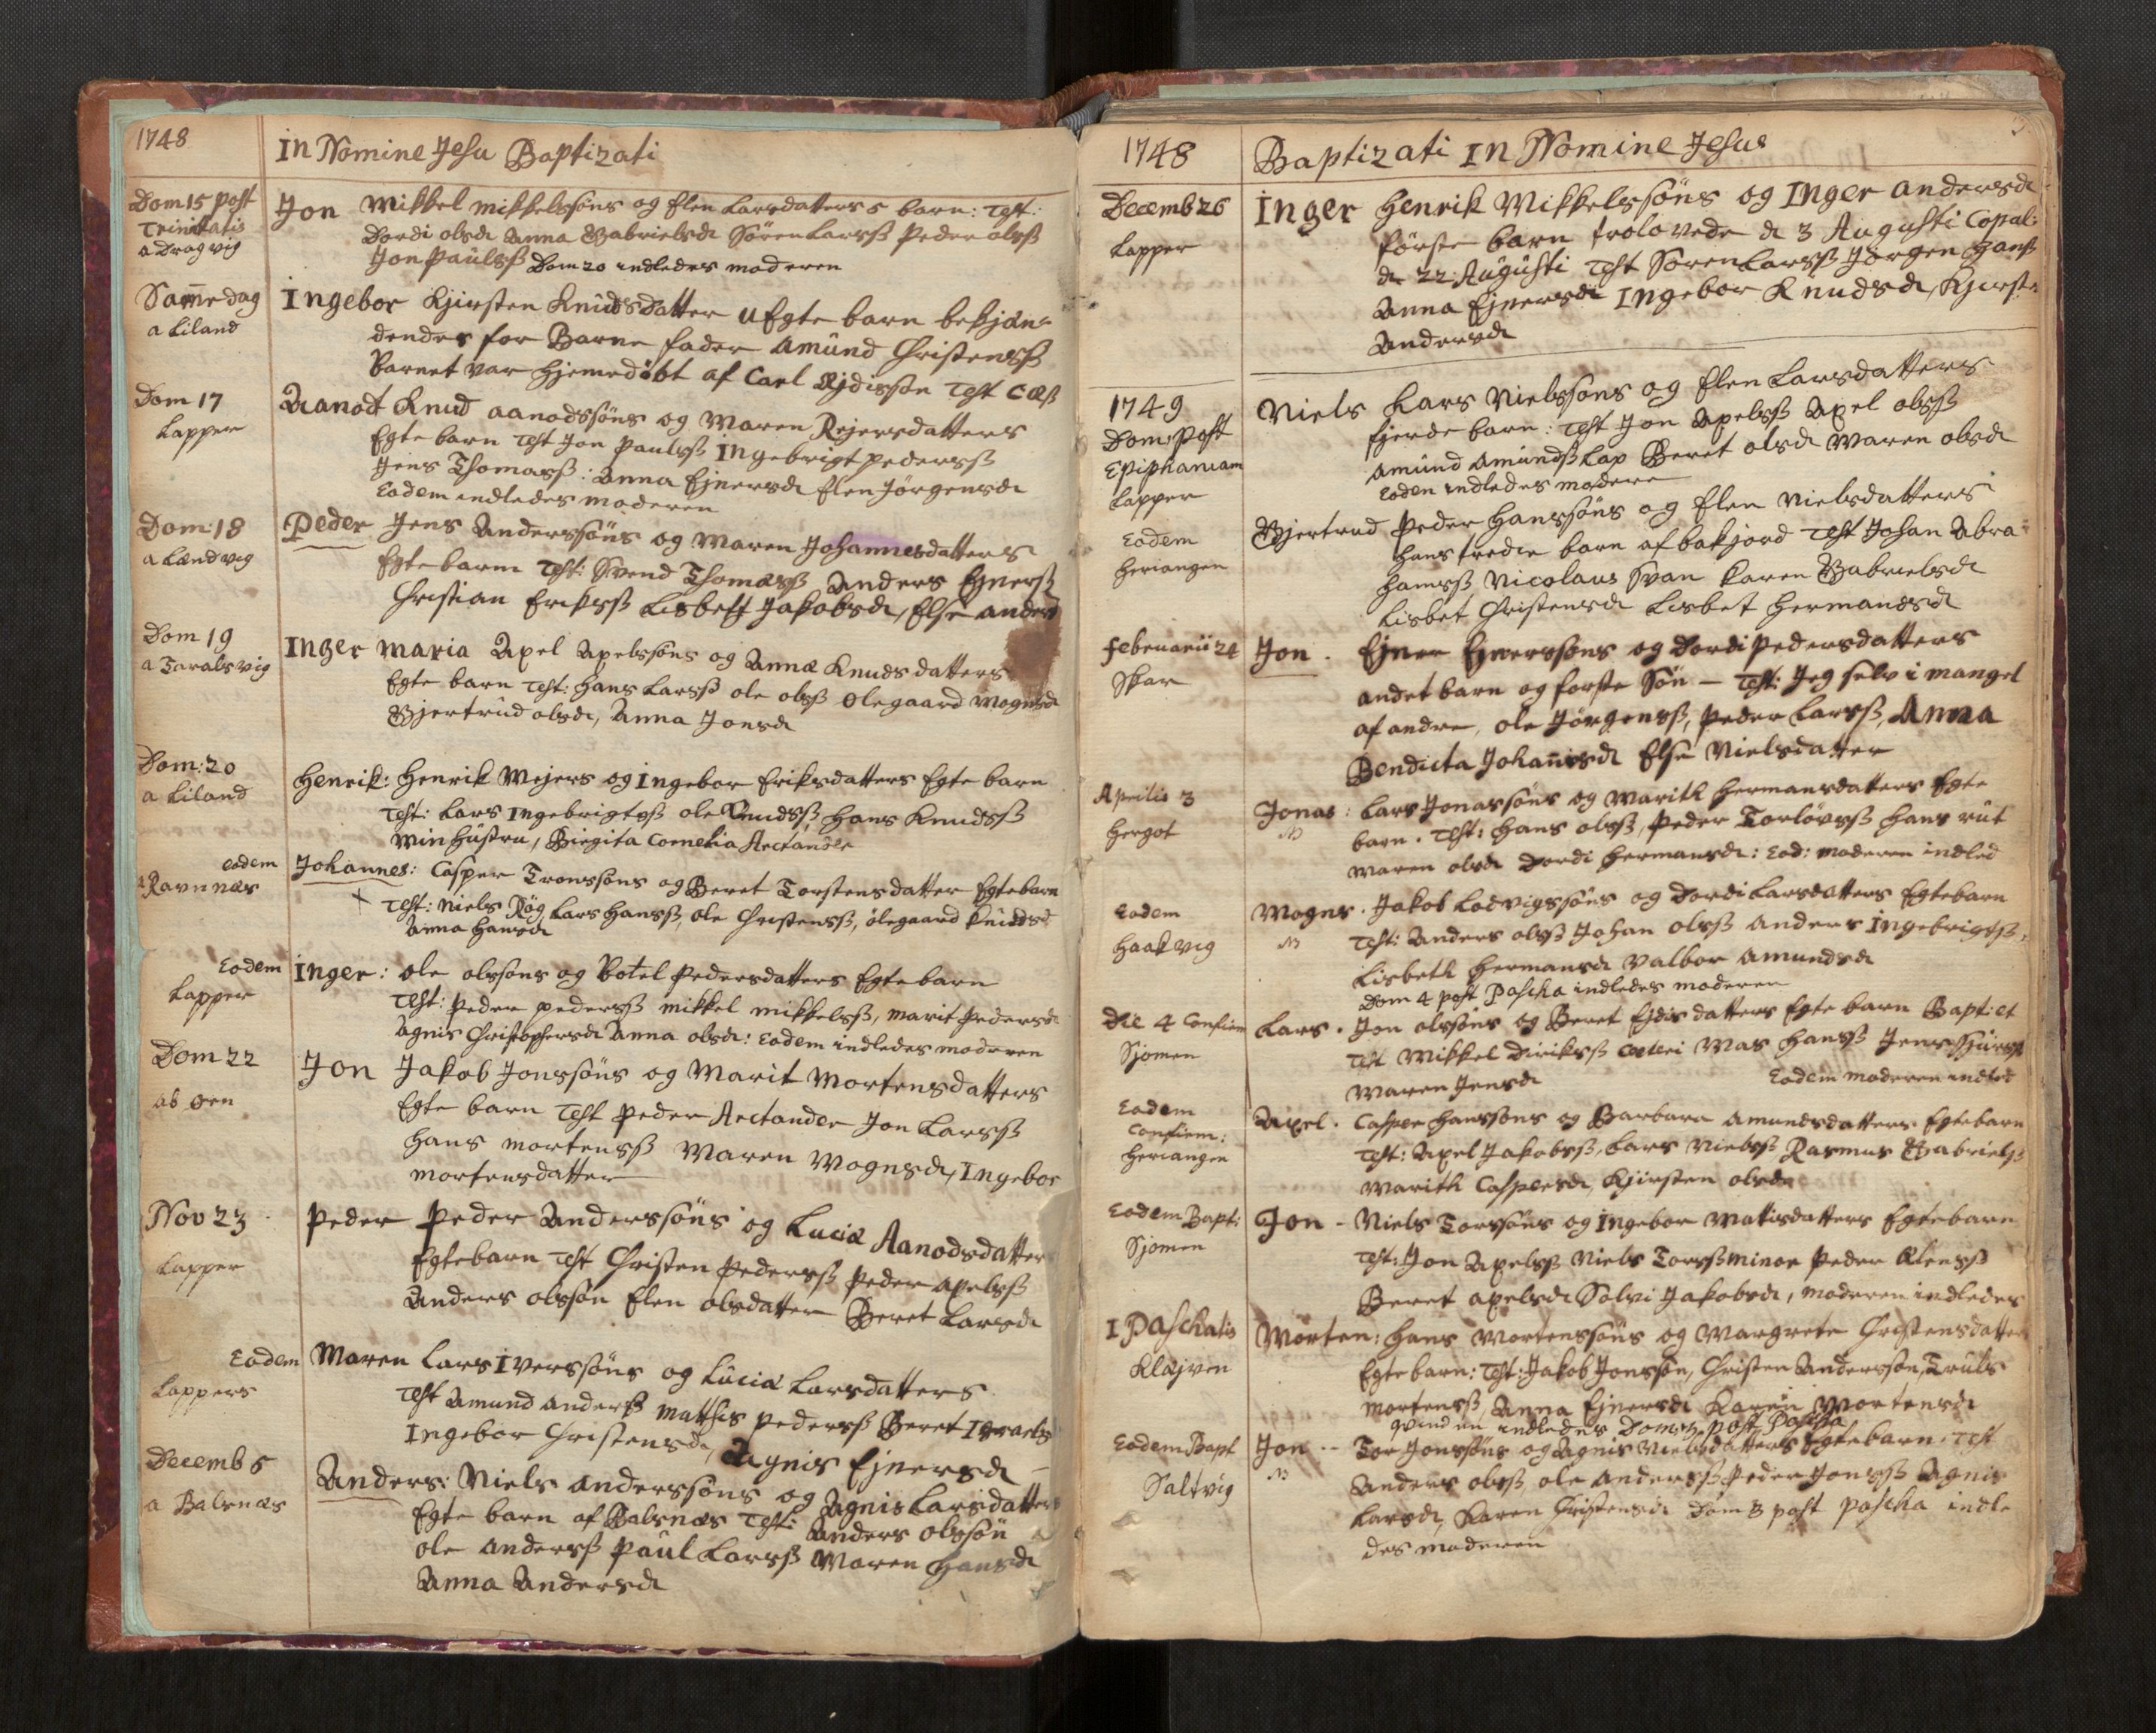 1748
In Nomine Jesu Baptizati
Dom 15 post
Trinitatis
a Dragvig
Jon Mikkel Mikkelssøns og Elen Larsdatters 5 barn: Test:
Dordi olsd Anna Gabrielsd Sören Larsß Peder olsß
Jon Paulsß Dom 20 indledes moderen
Samedag
a Liland
Ingebor Kjirsten Knudsdatter uEgte barn bekjen-
dendes for Barne fader Amund Christensß
Barnet var hjemedöbt af Carl Test
Dom 17
Lapper
Aanod Knud aanodssøns og Maren Rejersdatters
Egte barn Test Jon Paulsß Ingebrigt Pedersß
Jens Thomasß: Anna Ejnersd Elen Jörgensd
Eodem indledes moderen
Dom: 18
a Landvig
Peder Jens Anderssøns og Maren Johannesdatters
Egte barn Test: Svend Thomasß Anders Ejnersß
Christian Eriksß Lisbeth Jakobsd, Else anders
Dom 19
a Taralsvig
Inger Maria Axel Axelssøns og Anna Knudsdatters
Egte barn Test: Hans Larsß ole olsß Olegaard Mognsd
Gjertrud olsd, Anna Jonsd
Dom: 20
a Liland
Henrik: Henrik Mejers og Ingebor Eriksdatters Egte barn
Test: Lars Ingebrigtsß ole Knudsß, Hans Knudsß
Min hustru, Birgita Cornelia Arctander
eodem
a Ravnnæs
Johannes: Casper Tronssøns og Beret Torstensdatter Egtebarn
Test: Niels Røg Lars Hansß, ole Christensß, olegaard Knudsd
Anna Hansd
Eodem
Lapper
Inger: ole olssøns og Botel Pedersdatters Egte barn
Test: Peder pedersß mikkel mikkelsß, Marit Pedersd
Agnis Christophersd Anna olsd: Eodem indledes moderen
Dom 22
ab øen
Jon Jakob Jonssøns og Marit Mortensdatters
Egte barn Test Peder Arctander Jon Larsß
Hans mortensß Maren Mognsd, Ingebor
mortensdatter
Nov 23
Lapper
Peder Peder Anderssøns og Lucia Aanodsdatter
Egtebarn Test Christen Pedersß Peder Axelsß
Anders olssøn Elen olsdatter Beret Larsd
Eodem
Lappers
Maren Lars Iverssøns og Lucia Larsdatters
Test Amund Andersß Mattis Pedersß Beret Israels
Ingebor Christensd, Agnis Ejnersd
Decemb 5
a Balsnæs
Anders: Niels Anderssøns og Agnis Larsdatters
Egte barn af Balsnæs Test: Anders olssøn
ole Andersß Paul Larsß Maren Hansd
Anna Andersd
1748
Baptizati In Nomine Jesus
Decemb 26
Lapper
Inger Henrik Mikkelssøns og Inger andersd
förste barn trolovede d 3 Augusti Copul:
d 22 Augusti Test Sören Larsß Jörgen Hansß
Anna Ejnersd Ingebor Knudsd, Kjirst
Andersd
1749
Dom 1 Post
Epiphaniam
Lapper
Niels Lars Nielssøns og Elen Larsdatters
fjerde barn: Test Jon Axelsß Axel olsß
Amund Amundsß Lap Beret olsd Maren olsd
Eodem indledes modere
Eodem
Heriangen
Gjertrud Peder Hanssøns og Elen Nielsdatters
hans tredie barn af bakjord Test Johan Abra-
hamsß Nicolaus Svan Karen Gabrielsd
Lisbet Christensd Lisbet Hermandsd
Februarii 24
Skar
Jon. Ejner Ejnerssøns og Dordi Pedersdatters
andet barn og förste Søn - Test: Jeg selv i mangel
af andre, ole Jörgensß, Peder Larsß, Anna
Bendicta Johannisd Else Nielsdatter
Aprilis 3
Hergot
Jonas: Lars Jonassøns og Marith Hermansdatters Egte
barn. Test: Hans olsß, Peder Torlövsß Hans rut
Maren olsd Dordi Hermansd: Eod: moderen indled
Eodem
Haakvig
Mogns. Jakob Lodvigssøns og Dordi Larsdatters Egtebarn
Test: Anders olsß Johan olsß Anders Ingebrigtsß,
Lisbeth Hermansd Valbor Amundsd
Dom 4 post Pascha indledes moderen
Die 4 Confirm
Sjomen
Lars. Jon olssøns og Beret Ejdisdatters Egte barn Bapt: et
Test Mikkel Diriksß ceteri Mas Hansß Jens Sjursß
Maren Jensd Eodem moderen indled
Eodem
Confirm:
Heriangen
Axel. Casper Hanssøns og Barbara Amundsdatters Egtebarn
Test: Axel Jakobsß, Lars Nielsß Rasmus Gabrielsß
Marith Caspersd, Kjirsten olsd
Eodem Bapt:
Sjomen
Jon - Niels Torssøns og Ingebor Matisdatters Egtebarn
Test: Jon Axelsß Niels Torsß minor Peder Klensß
Beret axelsd Solvi Jakobsd, moderen indledes
I Paschatis
Klajven
Morten: Hans Mortenssøns og Margrete Christensdatter
Egte barn: Test: Jakob Jonssøn, Christen Anderssøn, Truls
Mortensß Anna Ejnersd Karen Mortensd
indledes Dom post Pascha
Eodem Bapt
Saltvig
Jon -- Tor Jonssøns og Agnis Nielsdatters Egtebarn. Test
Anders olsß, ole Andersß Peder Jonsß Agnis
Larsd, Karen Christensd Dom 3 post pascha indle
des moderen